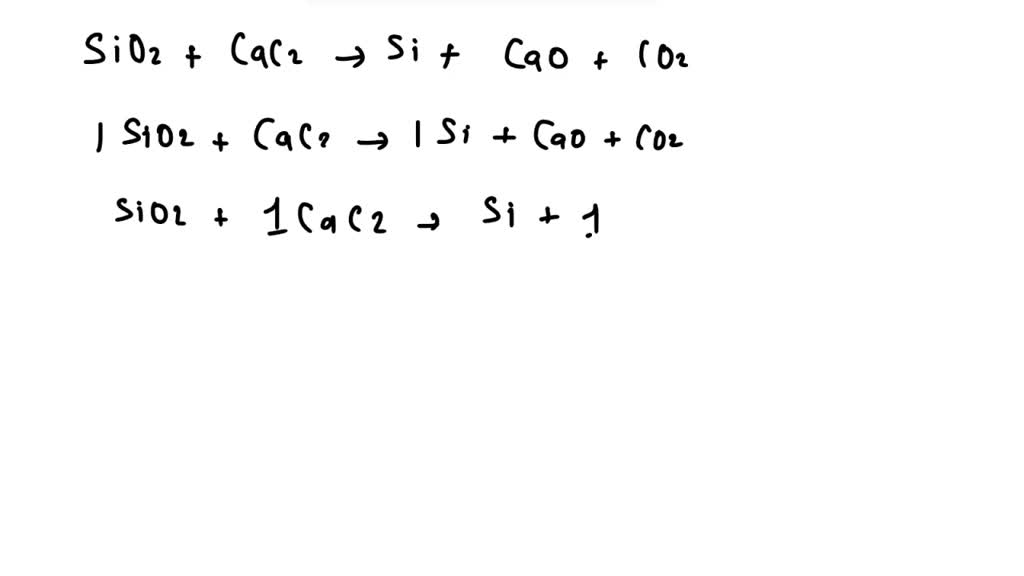 SiO2 + CaC2 → Si + CaO + CO2
1 SiO2 + CaC2 → 1 Si + CaO + CO2
SiO2 + 1 CaC2 → Si + 1